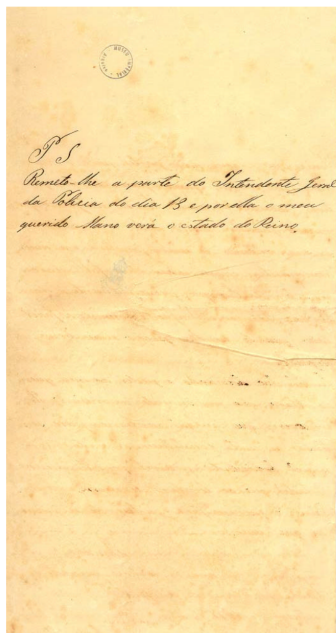 P S
Remeto-lhe a parte do Intendente Geral
da Policia do dia 13 e por ella o meu
querido Mano verá o estado do Reino.